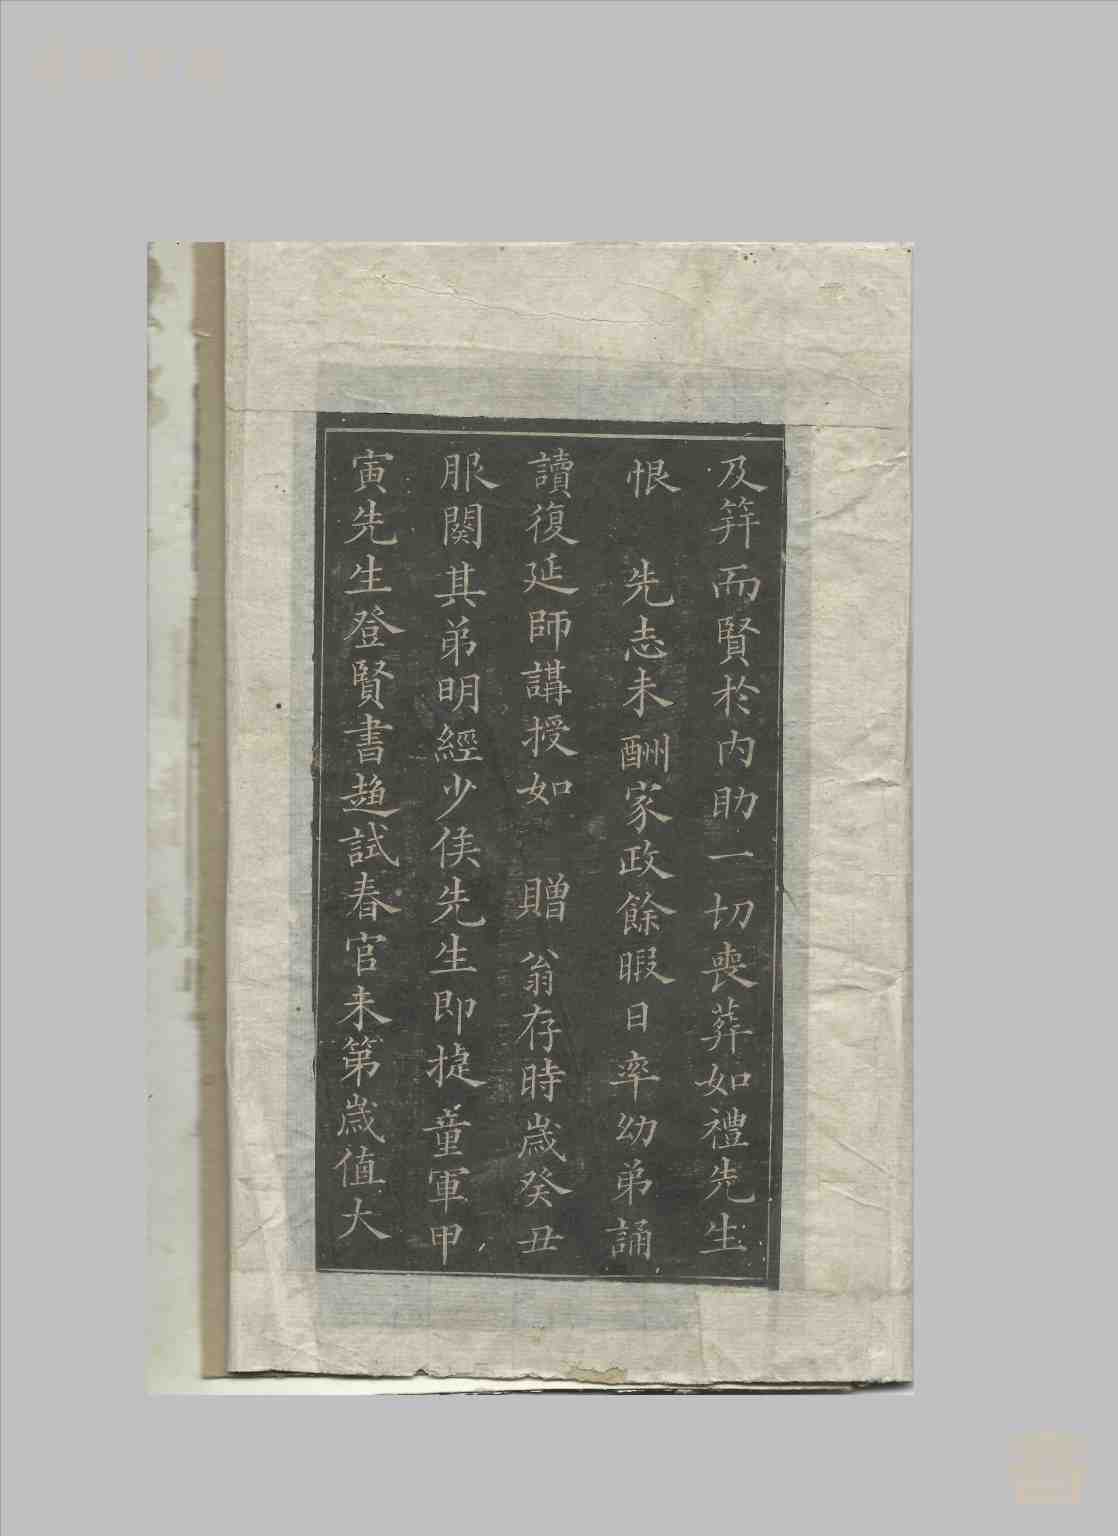 及笄而賢於內助一切喪葬如禮先生
恨　先志未酬家政餘暇日率幼弟誦
讀復延師講授如　贈翁存時歲癸丑
服闋其弟明經少侯先生即捷童軍甲
寅先生登賢書趙試春官未第歲值大